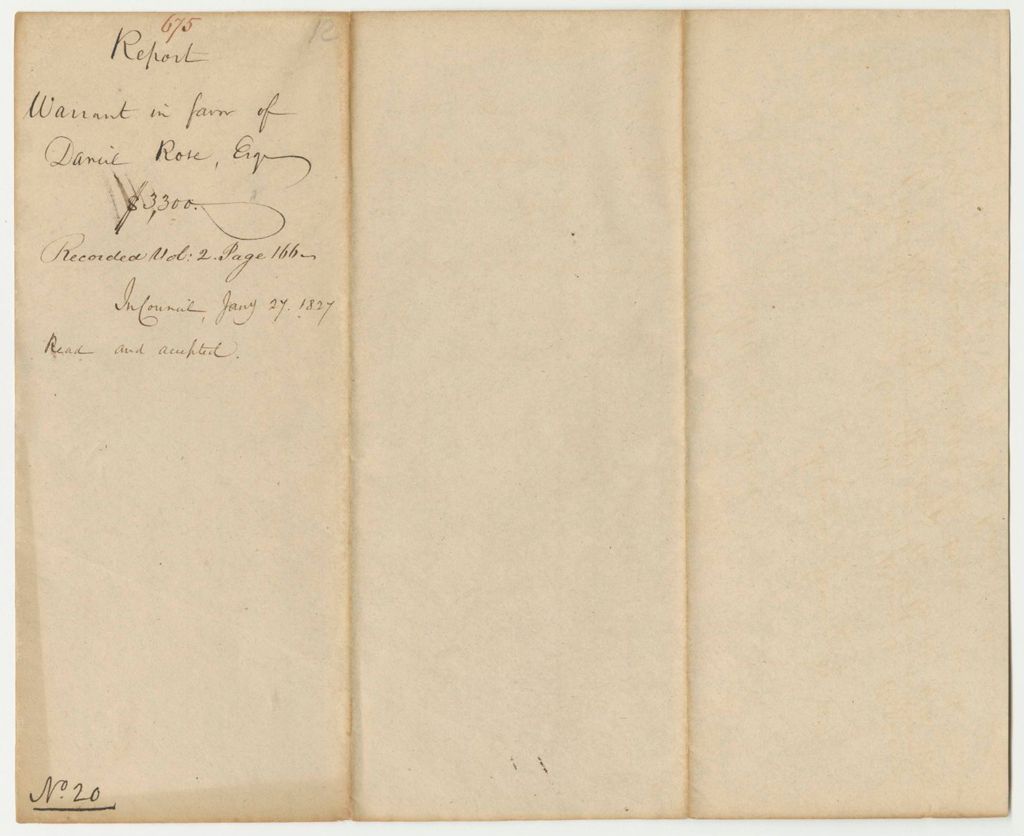 675
12
Report
Warrant in favor of
Daniel Rose, Esqr
$3,300.
Recorded Vol: 2. Page 166
In Council, Jany 27. 1827
Read and accepted.
No. 20